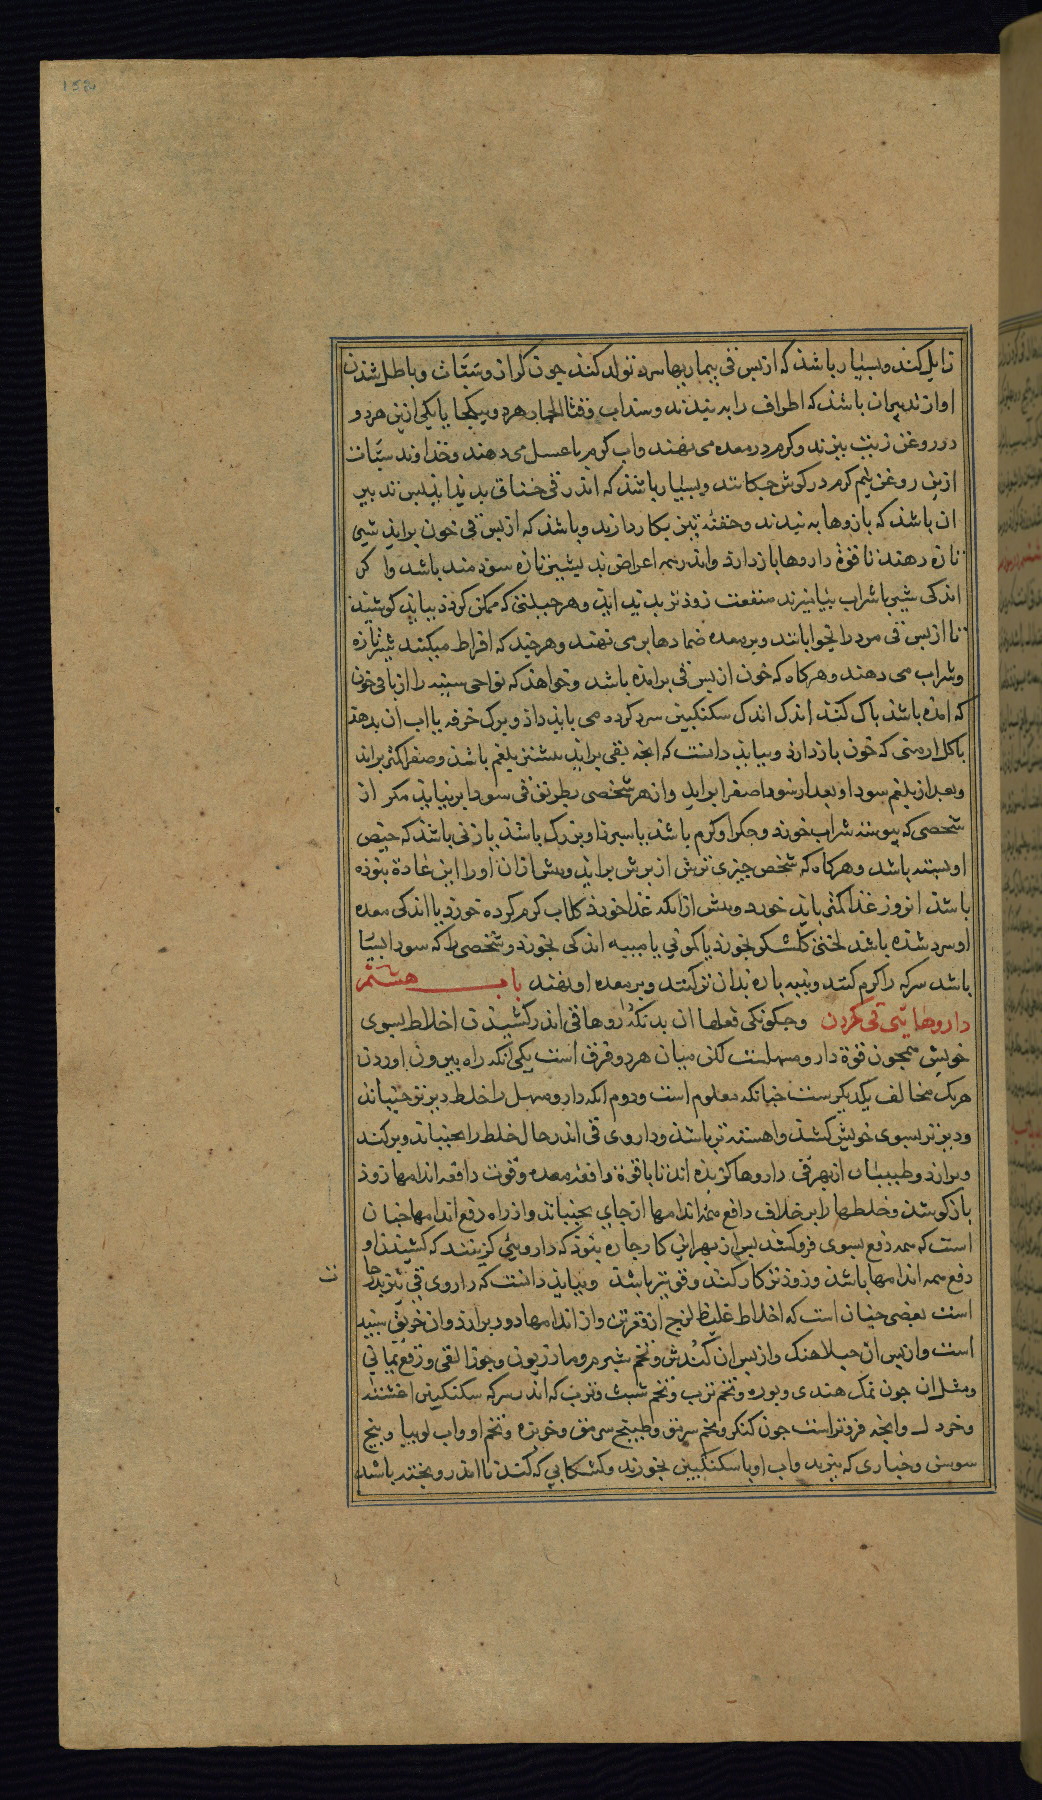 زایل کند و بسیار باشذ که از پس قی بیماریها سرد تولد کند چون کزاز و سبات و باطل شدن
اواز تدبیر ان باشذ که اطراف را به بندند و سنداب و قثا الحمار هردو بیکجا یا یکی ازین هردو
در روغن زیت بپزند و کرم در معده می نهند و اب کرم با عسل می دهند و خذاوند سبات
ازین روغن نیم کرم در کوش چکانند و بسیار باشذ که اندر قی خناق بدید ایذ پس تدبیر
ان باشذ که بازوها به بندند و حقنه تیز بکار دارند و باشذ که از پس قی خون برایذ شیر
تازه دهند تا قوة داروها باز دارد و اندر همه اعراض بد شیر تازه سوذمند باشد و اکر
اندکی شیر با شراب بیامیزند منفعت زوذتر بدید ایذ و هر حیلتی که ممکن کردذ ببایذ کوشید
تا از پس قی مرد را بخوابانند و بر معده ضمادها بر می نهند و هر چند که افراط میکند شیر تازه
و شراب می دهند و هرکاه که خون از پس قی برامده باشد و خواهذ که نواحی سینه را از باقی خون
که امذه باشذ پاک کنند اندک اندک سکنکبین سرد کرده می بایذ داذ و برک خرفه با اب ان بدهند
با کل ارمنی که خون باز دارد و ببایذ دانست که انچه بقی برایذ بیشتر بلغم باشذ و صفرا کمتر براید
و بعد از بلغم سودا و بعد از سودا صفرا براید و از هر شخصی بطریق قی سودا برنیایذ مکر از
شخصی که پیوسته شراب خورد و جکر او کرم باشذ یا سپرز او بزرک باشذ یا زنی باشذ که حیض
او بسته باشد و هرکاه که شخص چیزی ترش از برش برایذ و پیش از ان او را این عادة نبوذه
باشذ ان روز غذا کمتر باید خورد و پیش از انکه غذا خورذ کلاب کرم کرده خورد یا اندکی معده
او سرد شذه باشد لختی کلشکر بخورد یا کمونی یا میبه اندکی بخورد و شخصی را که سودا بسیا
باشد سرکه را کرم کنند و پنبه پاره بدان تر کنند و بر معده او نهند باب هشتم
داروهای قی کردن و چکونکی فعلها ان بدانکه داروها قی اندر کشیدن اخلاط بسوی
خویش همچون قوة دارو مسهلست لکن میان هردو فرق است یکی انکه راه بیرون اوردن
هر یک مخالف یکدیکرست چنانکه معلوم است و دوم انکه دارو مسهل را خلط دیرتر جنباند
و دیرتر بسوی خویش کشد و اهسته تر باشذ و داروی قی اندر حال خلط را بجنباند و برکند
و برارد و طبیبان از بهر قی داروها کزیذه اند تا با قوة دافعه معده و قوت دافعه اندامها زوذ
بازکوشد و خلطها را بر خلاف دافع همه اندامها از جای بجنباند و از راه دفع اندامها چنان
است که همه دفع بسوی فرو کشد پس از بهر این کار چاره نبوذ که داروئی کزینند که کشیدن او
دفع همه اندامها باشذ و زوذتر کار کند و قوی تر باشد و ببایذ دانست که داروی قی تیز
است بعضی چنان است که اخلاط غلیظ لزج از فروتن و از اندامها دور برارد و ان خربق سپید
است و از پس ان جبلاهنک و از پس ان کندش و تخم شبرم و مازریون و جوز القی و زقع یمانی
و مثل ان چون نمک هندی و بوره و تخم ترب و تخم شبث و ترب که اندر سرکه سکنکبین اغشته
و خردل و انچه فروتر است چون کنکر و تخم سرمق و طبیخ سرمق و خربزه و تخم او و اب لوبیا و بیخ
سوسن و خیاری که بپزند و اب او با سکنکبین بخورند و کشکابی که کنند تا اندر و پخته باشد